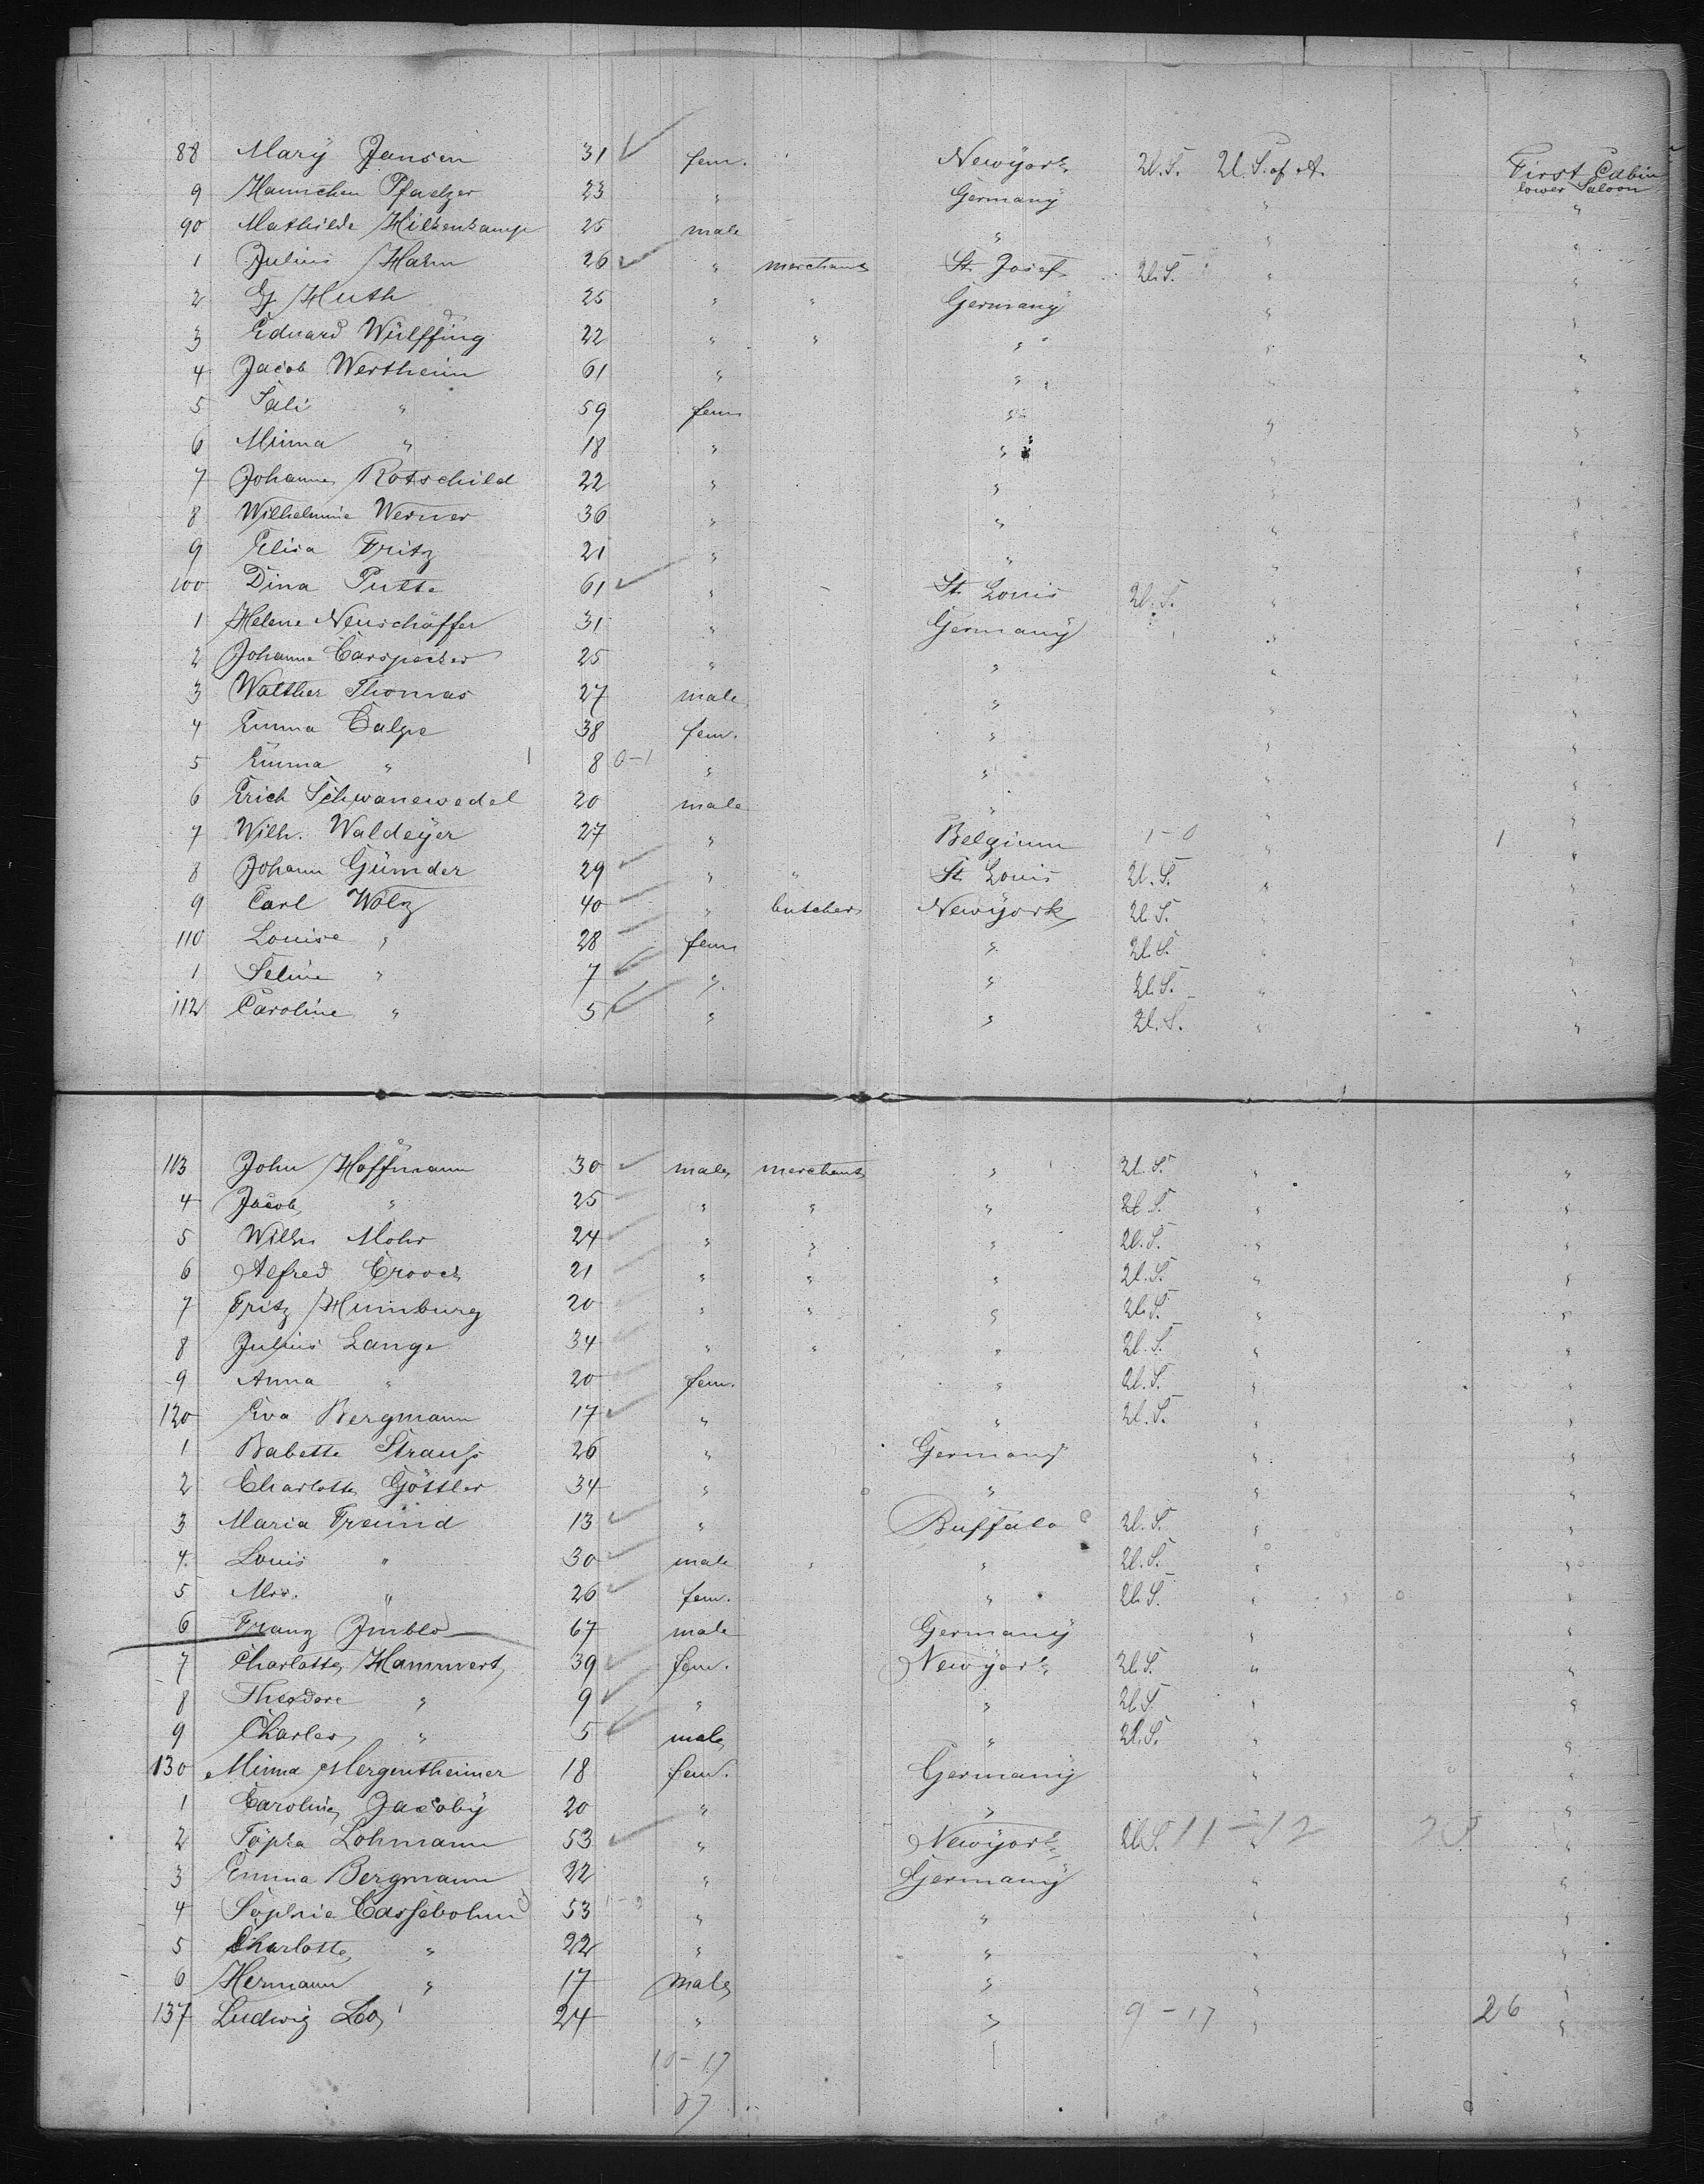 88 Marÿ Jansen 31 fem. Newÿork U.S. U.S. of A. First Cabin
lower Saloon
9 Hannchen Pfaelzer 23 " Germanÿ " "
90 Mathilde Hilkenkamp 25 male " " "
1 Julius Hahn 26 " merchant St. Josef U.S. " "
2 G. Huth 25 " " Germanÿ " "
3 Eduard Wülffing 22 " " " " "
4 Jacob Wertheim 61 " " " "
5 Sali " 59 fem " " "
6 Minna " 18 " " " "
7 Johanna Rotschild 22 " " " "
8 Wilhelmine Werner 36 " " " "
9 Elisa Fritz 21 " " " "
100 Dina Putte 61 " St. Louis U.S. " "
1 Helene Neuschäffer 31 " Germanÿ " "
2 Johanne Carspecker 25 " " " "
3 Walther Thomas 27 male " " "
4 Emma Calpe 38 fem. " " "
5 Emma " 8 0-1 " " " "
6 Erich Schwanewedel 20 male " " "
7 Wilh. Waldeÿer 27 " Belgium 1-0 " 1 "
8 Johann Gümder 29 " " St. Louis U.S. " "
9 Carl Wolz 40 " butcher Newÿork U.S. " "
110 Louise " 28 fem " U.S. " "
1 Seline " 7 " " U.S. " "
112 Caroline " 5 " " U.S. " "
113 John Hoffmann 30 male merchant " U.S. " "
4 Jacob " 25 " " " U.S. " "
5 Wilh. Mohr 24 " " " U.S. " "
6 Alfred Croock 21 " " " U.S. " "
7 Fritz Humburg 20 " " " U.S. " "
8 Julius Lange 34 " " " U.S. " "
9 Anna " 20 fem. " U.S. " "
120 Eva Bergmann 17 " " U.S. " "
1 Babette Strauß 26 " Germanÿ " "
2 Charlotte Göttler 34 " " " "
3 Maria Freund 13 " Buffalo U.S. " "
4 Louis " 30 male " " U.S. " "
5 Mrs. " 26 fem. " U.S. " "
6 Franz 67 male Germanÿ " "
7 Charlotte Hammert 39 fem. Newÿork U.S. " "
8 Theodore " 9 " " U.S. " "
9 Charles " 5 male " U.S. " "
130 Minna Mergentheimer 18 fem. Germanÿ " "
1 Caroline Jacobÿ 20 " " " "
2 Lohmann 53 " Newÿork U.S. 11-12 " 23 "
3 Emma Bergmann 22 " Germanÿ " "
4 Sophie Cassebohm 53 " " " "
5 Charlotte " 22 " " " "
6 Hermann " 17 male " " "
137 Ludwig 24 " " 9-17 " 26 "
10-17
27